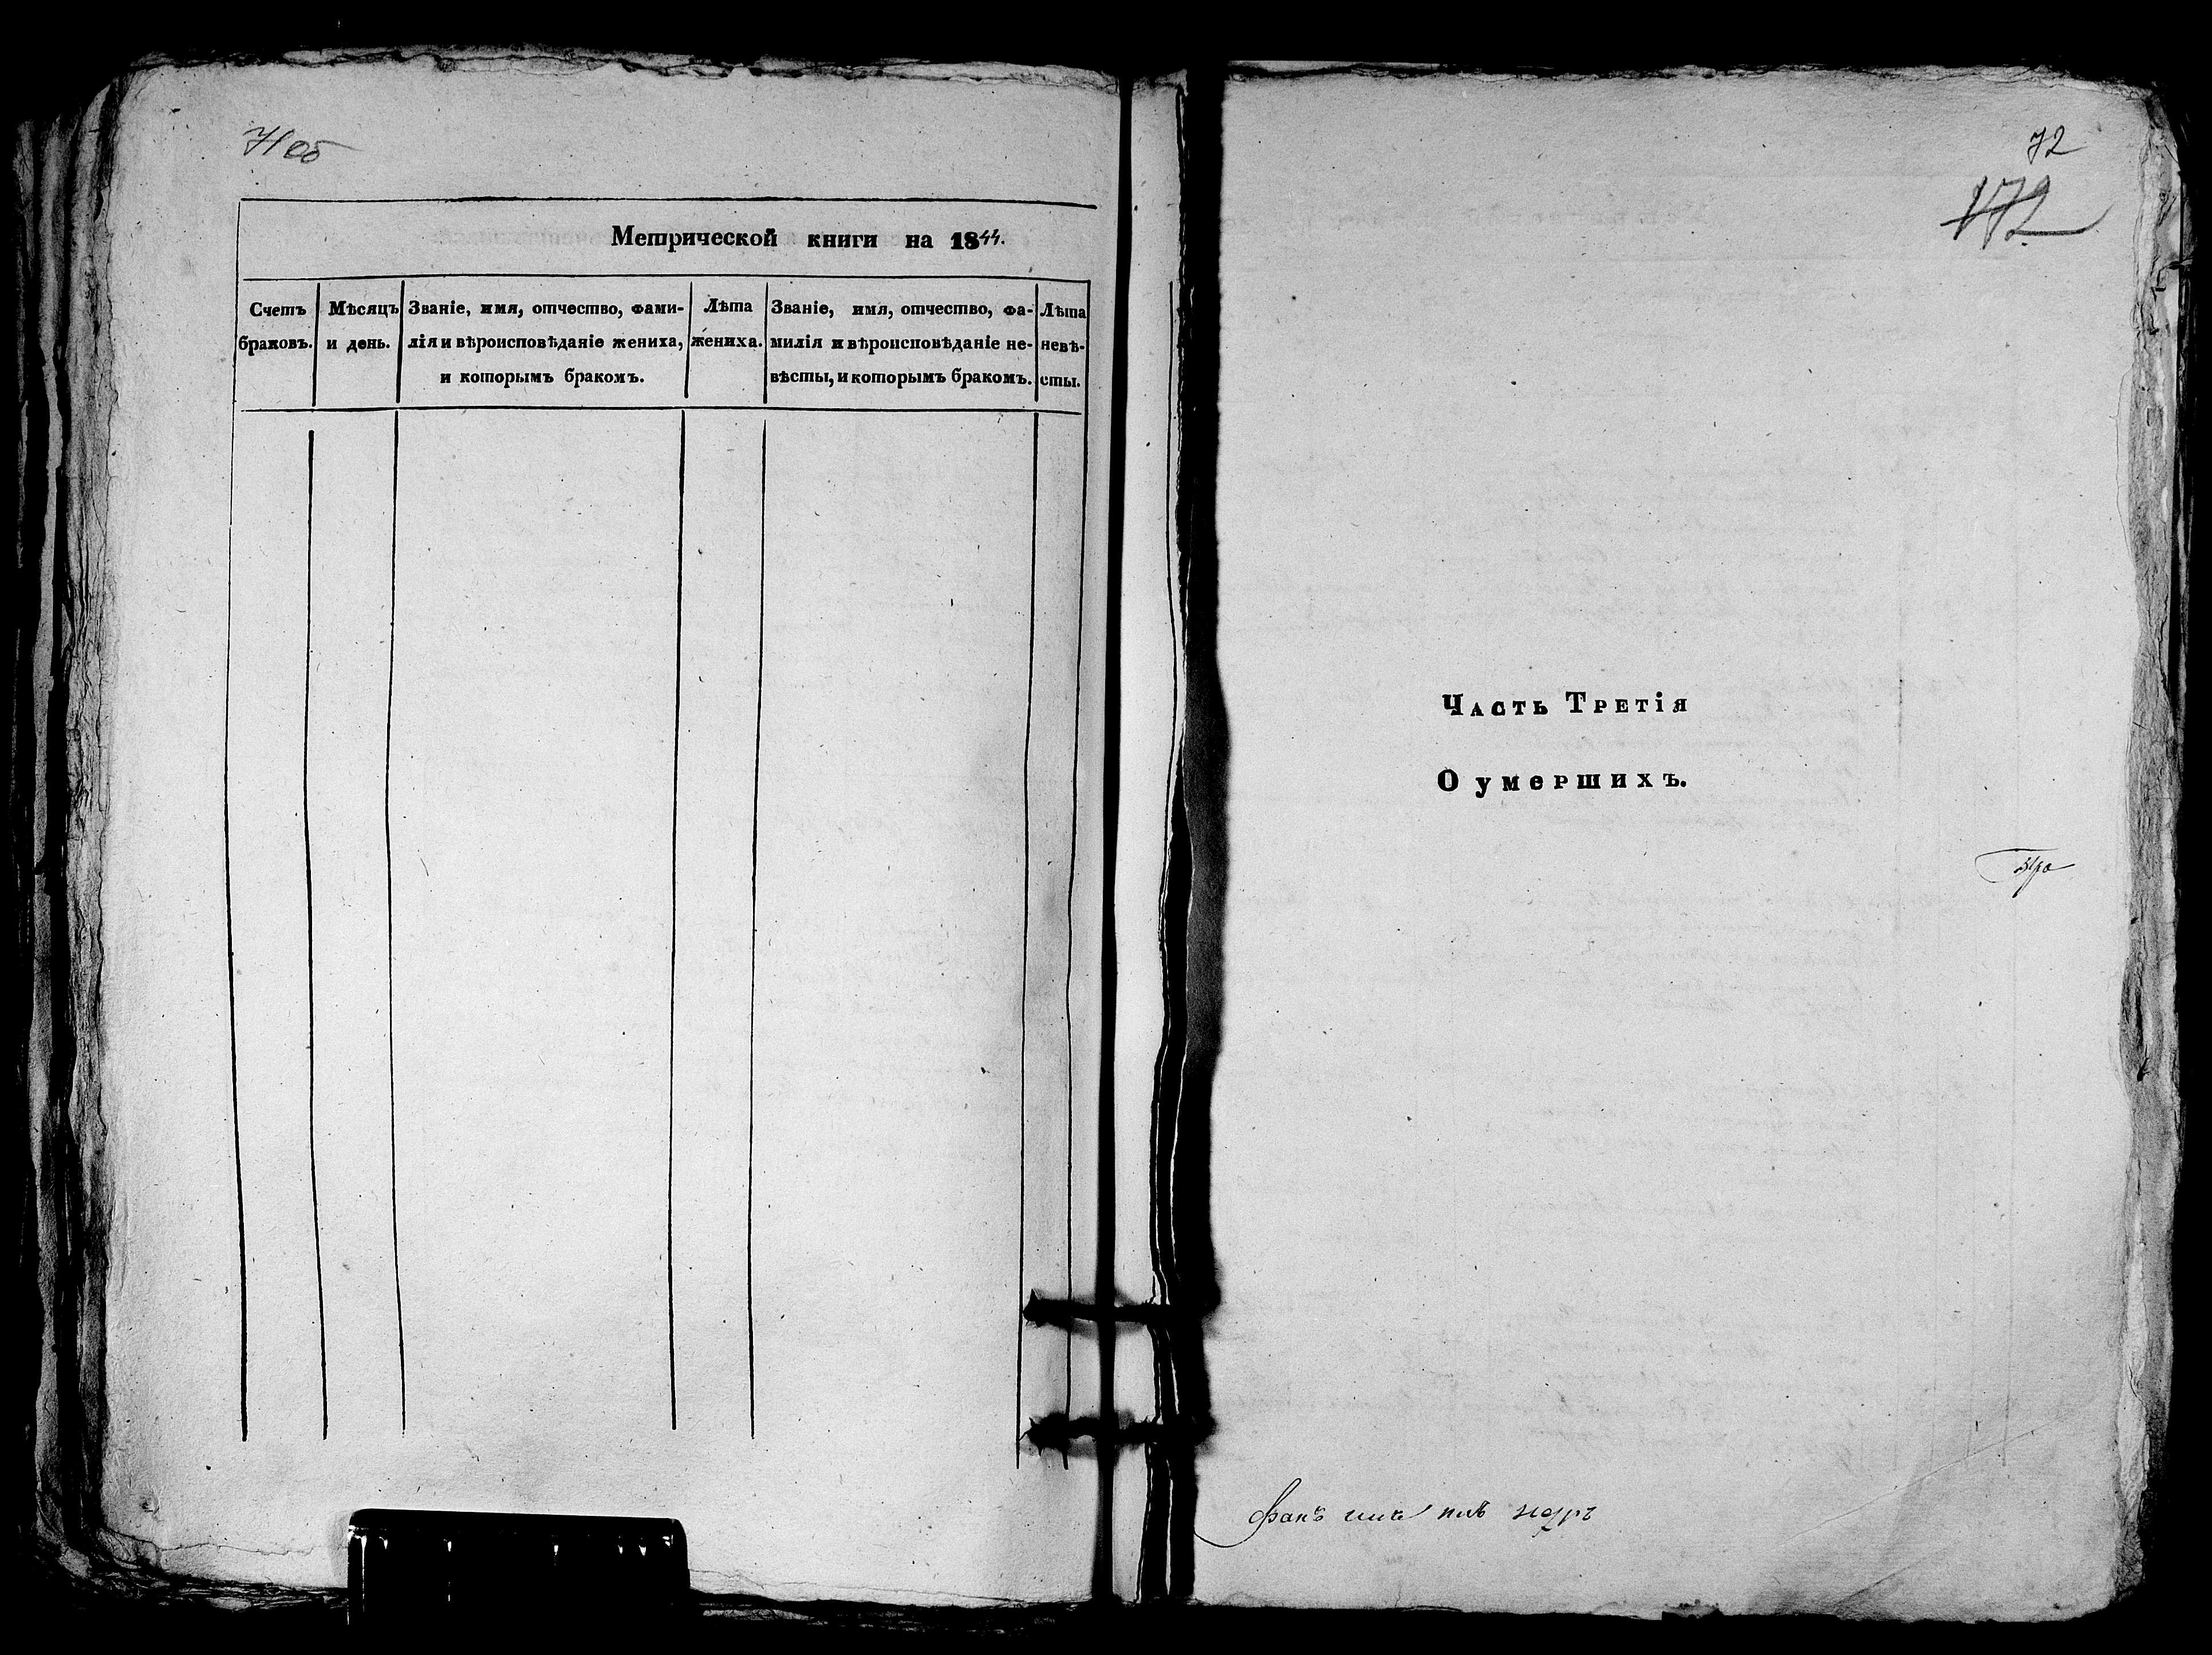 71 об
Метрической книги на 1844.
Счетъ браковъ.
Мѣсяцъ и день.
Званіе, имя, отчество, фами-
лія и вѣроисповѣданіе жениха,
и которымъ бракомъ.
Лѣта
жениха.
Званіе, имя, отчество, фа-
милія и вѣроисповѣданіе не-
вѣсты, и которымъ бракомъ.
Лѣта
невѣ-
сты.
72
172
Часть Третія
О умершихъ.